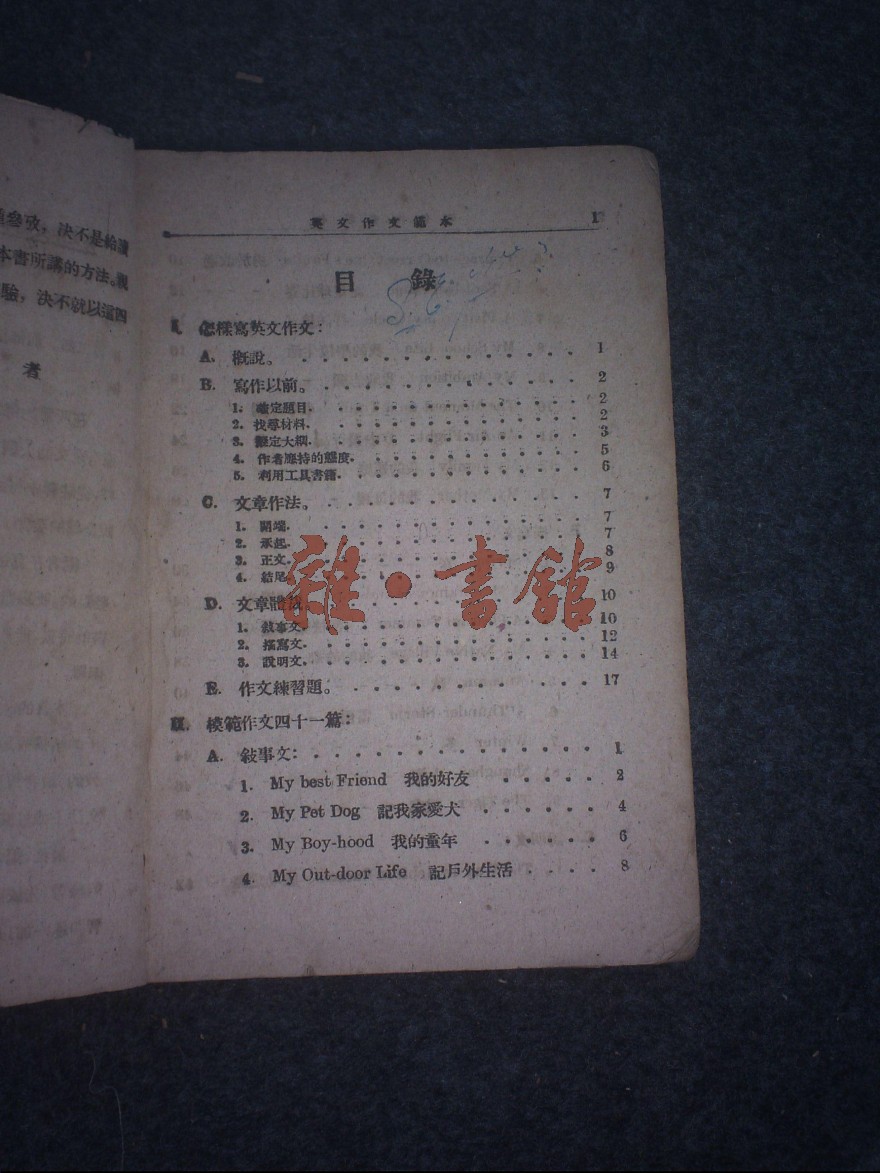 參攷，決不是給讀
本書所講的方法。
驗，決不就以這四
者
英文作文範本 1
目 錄
I. 怎樣寫英文作文：
A. 概說。 1
B. 寫作以前。 2
1. 確定題目. 2
2. 找尋材料. 2
3. 擬定大綱. 3
4. 作者應持的態度. 5
5. 利用工具書籍. 6
C. 文章作法。 7
1. 開端. 7
2. 承起. 7
3. 正文. 8
4. 結尾. 9
D. 文章體裁。 10
1. 敍事文. 10
2. 描寫文. 12
3. 說明文. 14
E. 作文練習題。 17
II. 模範作文四十一篇：
A. 敍事文： 1
1. My best Friend 我的好友 2
2. My Pet Dog 記我家愛犬 4
3. My Boy-hood 我的童年 6
4. My Out-door Life 記戶外生活 8
雜·書館